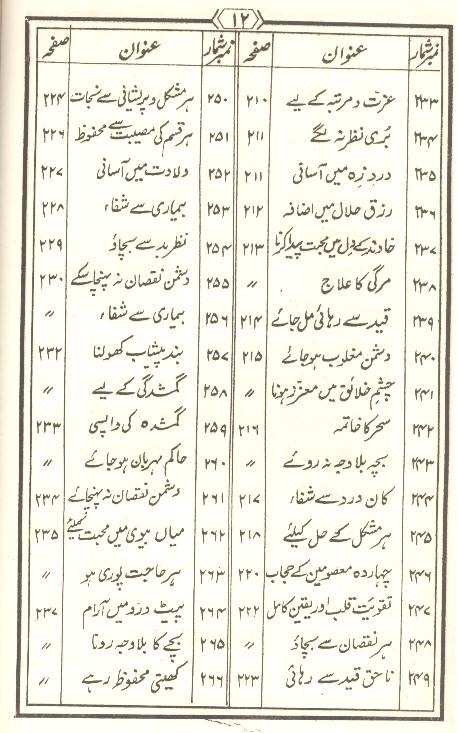 ۱۲
نمبر شمار عنوان صفحہ نمبر شمار عنوان صفحہ
۲۳۳ عزت و مرتبہ کے لیے ۲۱۰ ۲۵۰ ہر مشکل و پریشانی سے نجات ۲۲۴
۲۳۴ بُری نظر نہ لگے ۲۱۱ ۲۵۱ ہر قسم کی مصیبت سے محفوظ ۲۲۶
۲۳۵ دردِ زِہ میں آسانی ۲۱۱ ۲۵۲ ولادت میں آسانی ۲۲۷
۲۳۶ رزق حلال میں اضافہ ۲۱۲ ۲۵۳ بیماری سے شفاء ۲۲۸
۲۳۷ خاوند کے دل میں محبت پیدا کرنا ۲۱۳ ۲۵۴ نظر بد سے بچاؤ ۲۲۹
۲۳۸ مرگی کا علاج ״ ۲۵۵ دشمن نقصان نہ پہنچا سکے ۲۳۰
۲۳۹ قید سے رہائی مل جائے ۲۱۴ ۲۵۶ بیماری سے شفاء ״
۲۴۰ دشمن مغلوب ہو جائے ۲۱۵ ۲۵۷ بند پیشاب کھولنا ۲۳۲
۲۴۱ چشمِ خلائق میں معزز ہونا ״ ۲۵۸ گمشدگی کے لیے ״
۲۴۲ سحر کا خاتمہ ۲۱۶ ۲۵۹ گمشدہ کی واپسی ۲۳۳
۲۴۳ بچہ بلا وجہ نہ روئے ״ ۲۶۰ حاکم مہربان ہو جائے ״
۲۴۴ کان درد سے شفاء ۲۱۷ ۲۶۱ دشمن نقصان نہ پہنچائے ۲۳۴
۲۴۵ ہر مشکل کے حل کیلئے ۲۱۸ ۲۶۲ میاں بیوی میں محبت کیلئے ۲۳۵
۲۴۶ چہاردہ معصومین کے حجاب ۲۲۰ ۲۶۳ ہر حاجت پوری ہو ״
۲۴۷ تقویّت قلب اور یقین کامل ۲۲۲ ۲۶۴ پیٹ درد میں آرام ۲۳۷
۲۴۸ ہر نقصان سے بچاؤ ״ ۲۶۵ بچے کا بلا وجہ رونا ״
۲۴۹ ناحق قید سے رہائی ۲۲۳ ۲۶۶ کھیتی محفوظ رہے ״